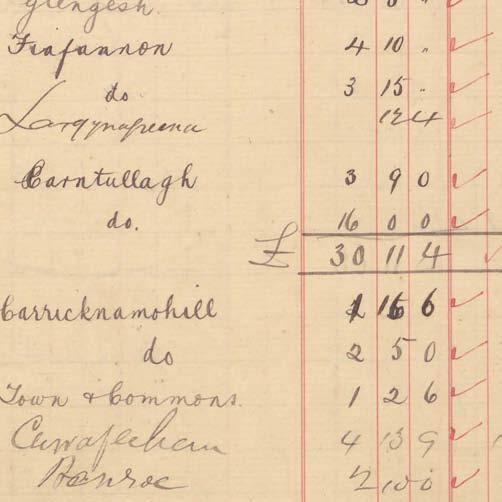 Glengesh. 3 0 "
Trafannon 4 10 "
do 3 15 "
Largynagreena 12 4
Carntullagh 3 9 0
do. 16 0 0
£ 30 11 4
Carricknamohill 1 16 6
do 2 5 0
Town & Commons. 1 2 6
4 13 9